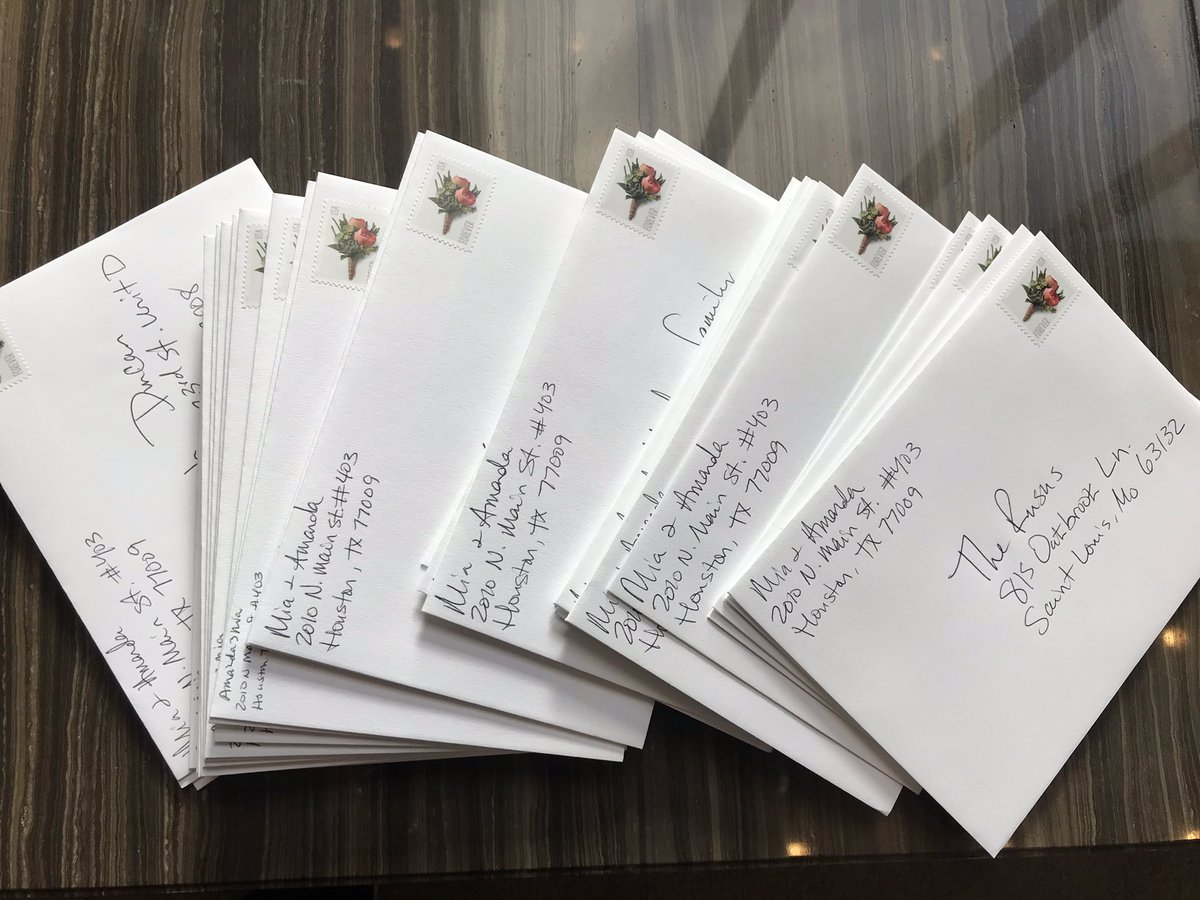 Duncan
3rd St. Unit D
Mia & Amanda
N. Main St. #403
TX 77009
Mia
Amanda & Mia
2010 N Ma
#403
Houston T
FOREVER
Mia & Amanda
2010 N. Main St. #403
Houston, TX 77009
FOREVER
Mia & Amanda
2010 N. Main St. #403
Houston, TX 77009
FOREVER
family
Mia & Amanda
2010 N. Main St. #403
Houston, TX 77009
FOREVER
Mia & Amanda
2010 N. Main St. #403
Houston, TX 77009
FOREVER
The Rusus
815 Oatbrook Ln.
Saint Louis, Mo 63132